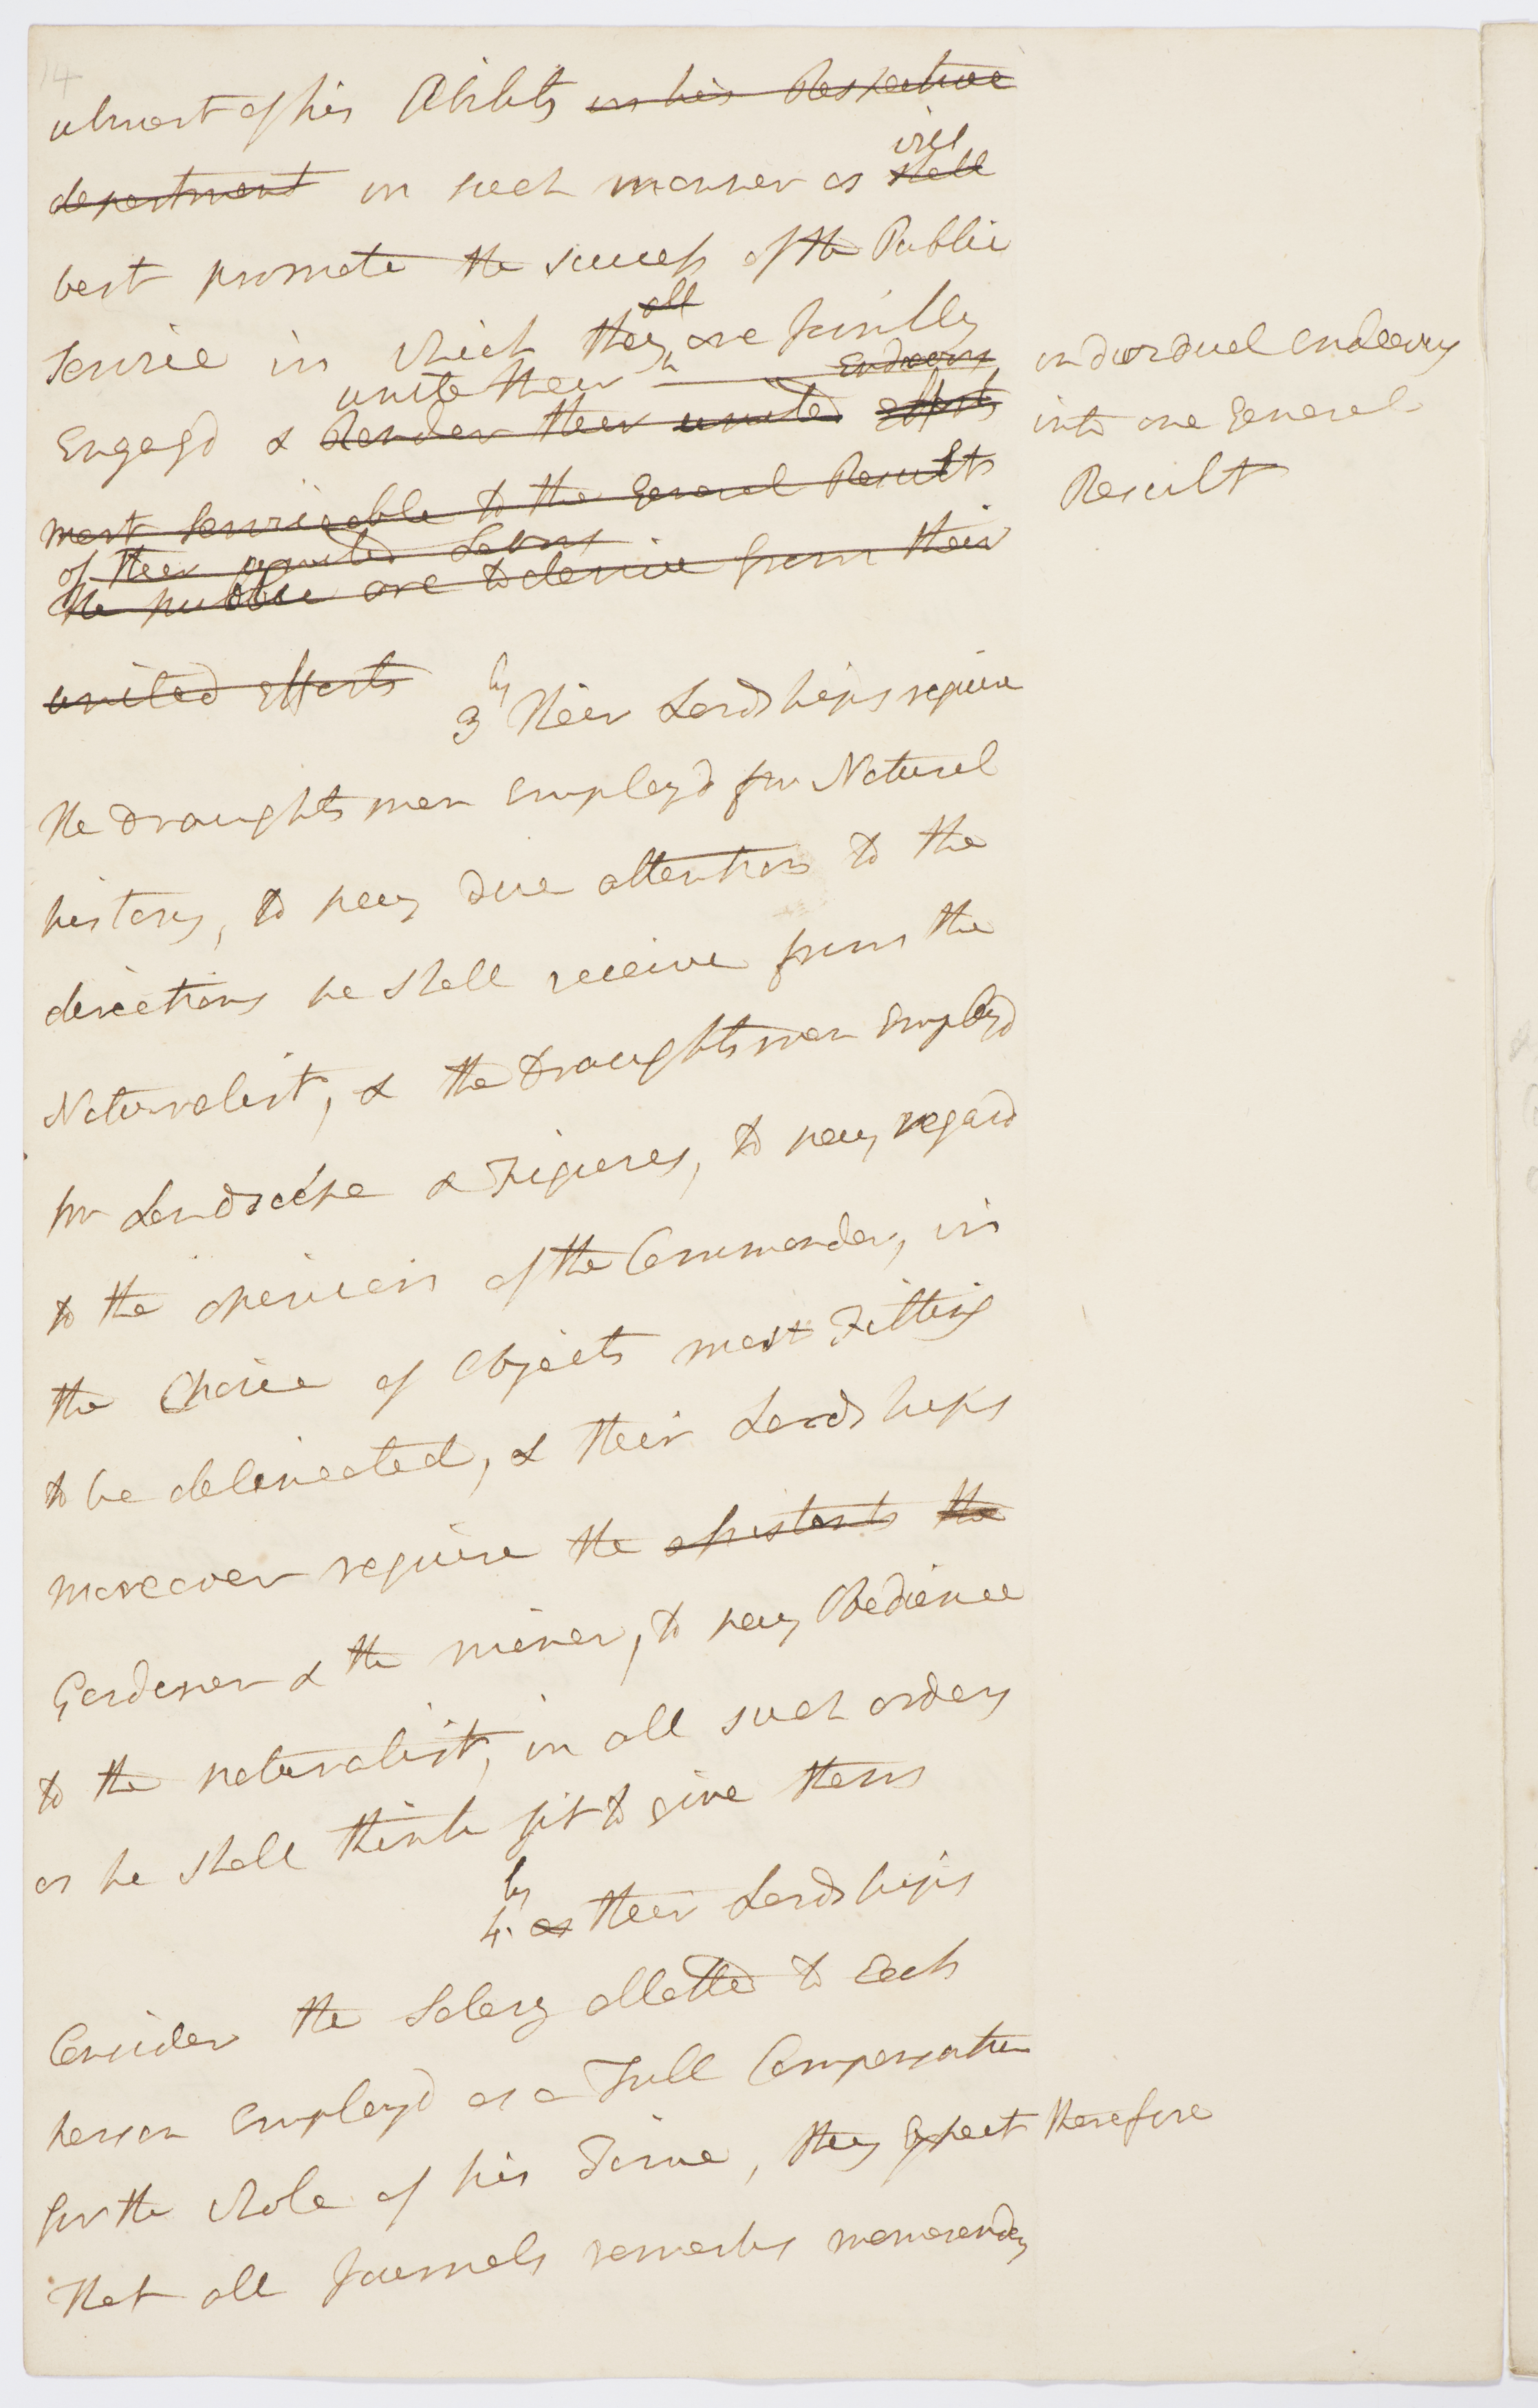 14
utmost of his Ability in his Respective
will
department in such manner as shall
best promote the success of the Public
all
Service in which they are Jointly
unite their Endeavors individual endeavors
Engagd & Render their united efforts into one General
most Serviceable to the General Results Result
of their united Labors
the public are to derive from their
united efforts 3ly Their Lordships require
the draughtsman Employd for Natural
history, to pay due attention to the
directions he shall receive from the
Naturalist, & the draughtsman Employd
for Landscape & Figures, to pay regard
to the opinion of the Commander, in
the Choice of Objects most Fitting
to be delineated, & their Lordships
moreover require the assistants the
Gardener & the miner, to pay Obedience
to the naturalist, in all such orders
as he shall think fit to give them
4ly as their Lordships
Consider the Salary allotted to Each
person Employd as a Full Compensation
for the whole of his Time, they Expect therefore
that all Journals remarks memorandums